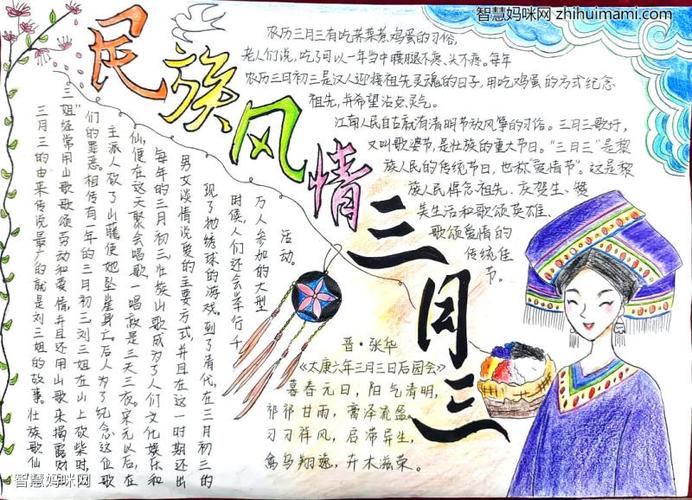 智慧妈咪网 zhihuimami.com
民族风情三月三
农历三月三有吃荠菜煮鸡蛋的习俗，
老人们说，吃了可以一年当中腰腿不疼、头不疼。每年
农历三月初三是汉人迎接祖先灵魂的日子，用吃鸡蛋的方式纪念
祖先，并希望沾点灵气。
江南人民自古就有清明节放风筝的习俗。三月三歌圩，
又叫歌婆节，是壮族的重大节日。“三月三”是黎
族人民的传统节日，也称“爱情节”。这是黎
族人民悼念祖先、庆贺生、
美生活和歌颂英雄、
歌颂爱情的
传统佳
节。
三月三的由来传说最广的就是刘三姐的故事。壮族歌仙
三姐”经常用山歌歌颂劳动和爱情并且还用山歌来揭露财
们的罪恶。相传有一年的三月初三刘三姐在山上砍柴时，
主派人砍了山藤使她坠崖身亡。后人为了纪念这位歌
仙，便在这天聚会唱歌一唱就是三天三夜。宋元以后，在
每年的三月初三壮族山歌成为了人们文化娱乐和
男女谈情说爱的主要方式，并且在这一时期还出
现了抛绣球的游戏，到了清代，在三月初三的
时候，人们还会举行千
万人参加的大型
活动.
晋·张华
《太康六年三月三日后园会》
暮春元日，阳气清明，
祁祁甘雨，膏泽流盈。
习习祥风，启滞异生，
禽鸟翔逸，卉木滋荣。
智慧妈咪网